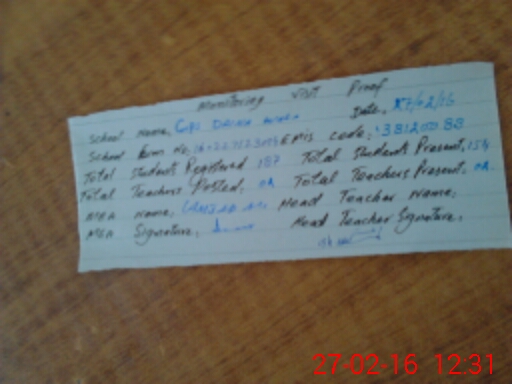 Monitoring Visit Proof
Date, 27/02/16
School Name, GGPS
School Form No, EMIS code: 38120083
Total Students Registered 187 Total Students Present, 154
Total Teachers Posted, 02 Total Teachers Present, 02.
MEA Name; Head Teacher Name;
MEA Signature; Head Teacher Signature,
27-02-16 12:31